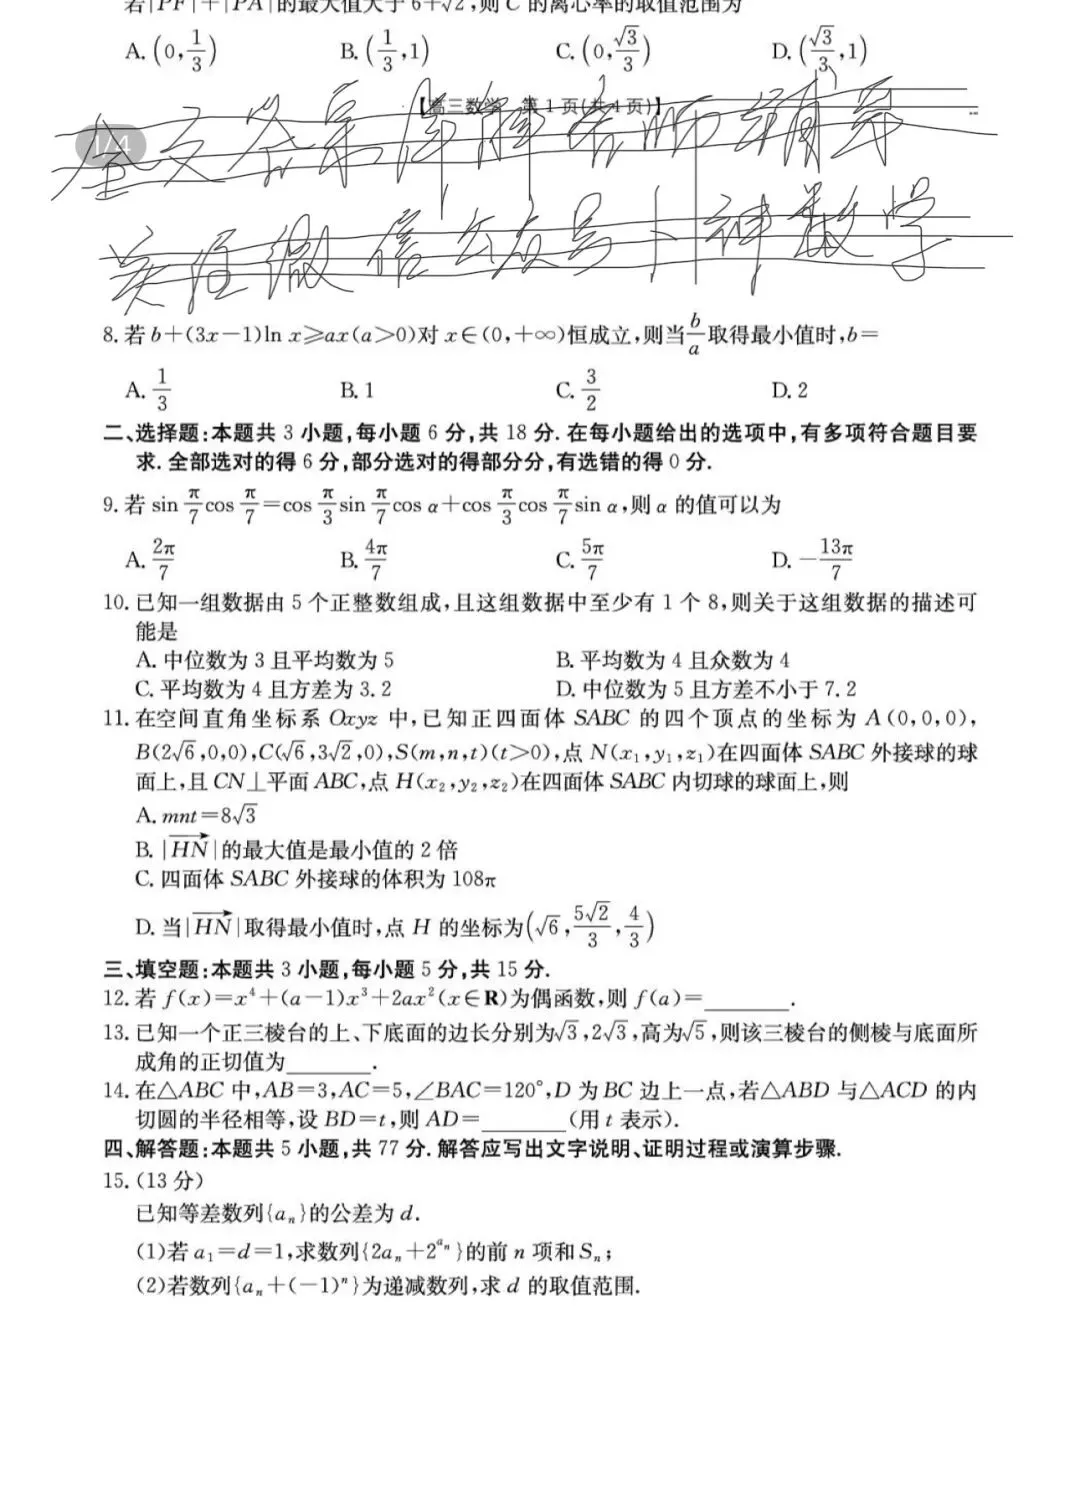 若|PF|+|PA|的最大值大于6+√2,则C的离心率的取值范围为
A. (0,1/3) B. (1/3,1) C. (0,√3/3) D. (√3/3,1)
【高三数学 第1页(共4页)】
1/4
全文答案详解名师辅导
关注微信公众号卜神数学
8. 若b+(3x−1)ln x≥ax(a>0)对x∈(0,+∞)恒成立,则当b/a取得最小值时,b=
A. 1/3 B. 1 C. 3/2 D. 2
二、选择题:本题共3小题,每小题6分,共18分. 在每小题给出的选项中,有多项符合题目要
求. 全部选对的得6分,部分选对的得部分分,有选错的得0分.
9. 若sin π/7 cos π/7=cos π/3 sin π/7 cos α+cos π/3 cos π/7 sin α,则α的值可以为
A. 2π/7 B. 4π/7 C. 5π/7 D. −13π/7
10. 已知一组数据由5个正整数组成,且这组数据中至少有1个8,则关于这组数据的描述可
能是
A. 中位数为3且平均数为5 B. 平均数为4且众数为4
C. 平均数为4且方差为3.2 D. 中位数为5且方差不小于7.2
11. 在空间直角坐标系Oxyz中,已知正四面体SABC的四个顶点的坐标为A(0,0,0),
B(2√6,0,0),C(√6,3√2,0),S(m,n,t)(t>0),点N(x₁,y₁,z₁)在四面体SABC外接球的球
面上,且CN⊥平面ABC,点H(x₂,y₂,z₂)在四面体SABC内切球的球面上,则
A. mnt=8√3
B. |HN→|的最大值是最小值的2倍
C. 四面体SABC外接球的体积为108π
D. 当|HN→|取得最小值时,点H的坐标为(√6,5√2/3,4/3)
三、填空题:本题共3小题,每小题5分,共15分.
12. 若f(x)=x⁴+(a−1)x³+2ax²(x∈R)为偶函数,则f(a)=________.
13. 已知一个正三棱台的上、下底面的边长分别为√3,2√3,高为√5,则该三棱台的侧棱与底面所
成角的正切值为________.
14. 在△ABC中,AB=3,AC=5,∠BAC=120°,D为BC边上一点,若△ABD与△ACD的内
切圆的半径相等,设BD=t,则AD=________(用t表示).
四、解答题:本题共5小题,共77分. 解答应写出文字说明、证明过程或演算步骤.
15. (13分)
已知等差数列{aₙ}的公差为d.
(1)若a₁=d=1,求数列{2aₙ+2^{aₙ}}的前n项和Sₙ;
(2)若数列{aₙ+(−1)ⁿ}为递减数列,求d的取值范围.